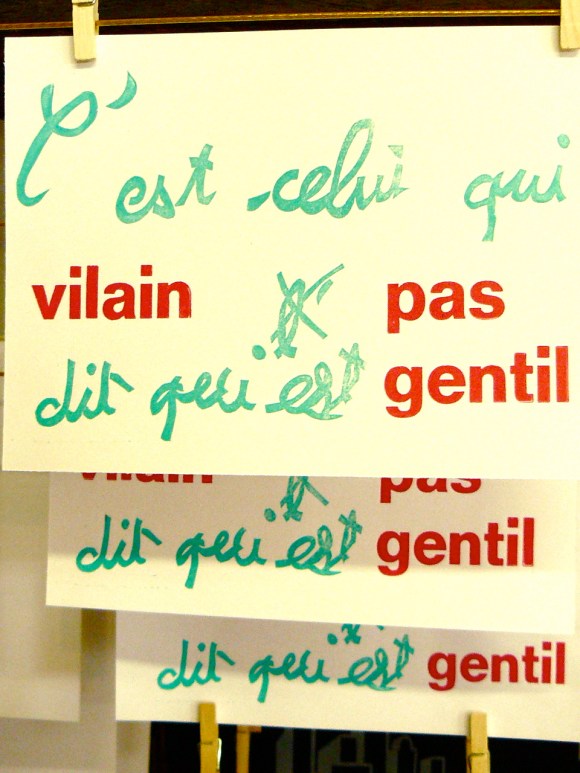 C'est celui qui
vilain pas
dit qui est gentil
vilain pas
dit qui est gentil
dit qui est gentil